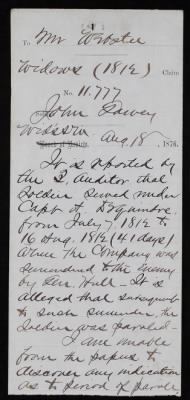 To Mr Webster
Widows (1812) Claim
No. 11.777
John
Widow Aug 18, 1876.
It is reported by
the 3, Auditor that
Soldier served under
Capt A. Dequindre
from July 7 1812 to
16 Aug. 1812 (41 days)
when the Company was
surrendered to the enemy
by Gen. Hull - It is
alleged that subsequent
to such surrender, the
Soldier was paroled -
I am unable
from the papers to
discover any indication
as to period of parole